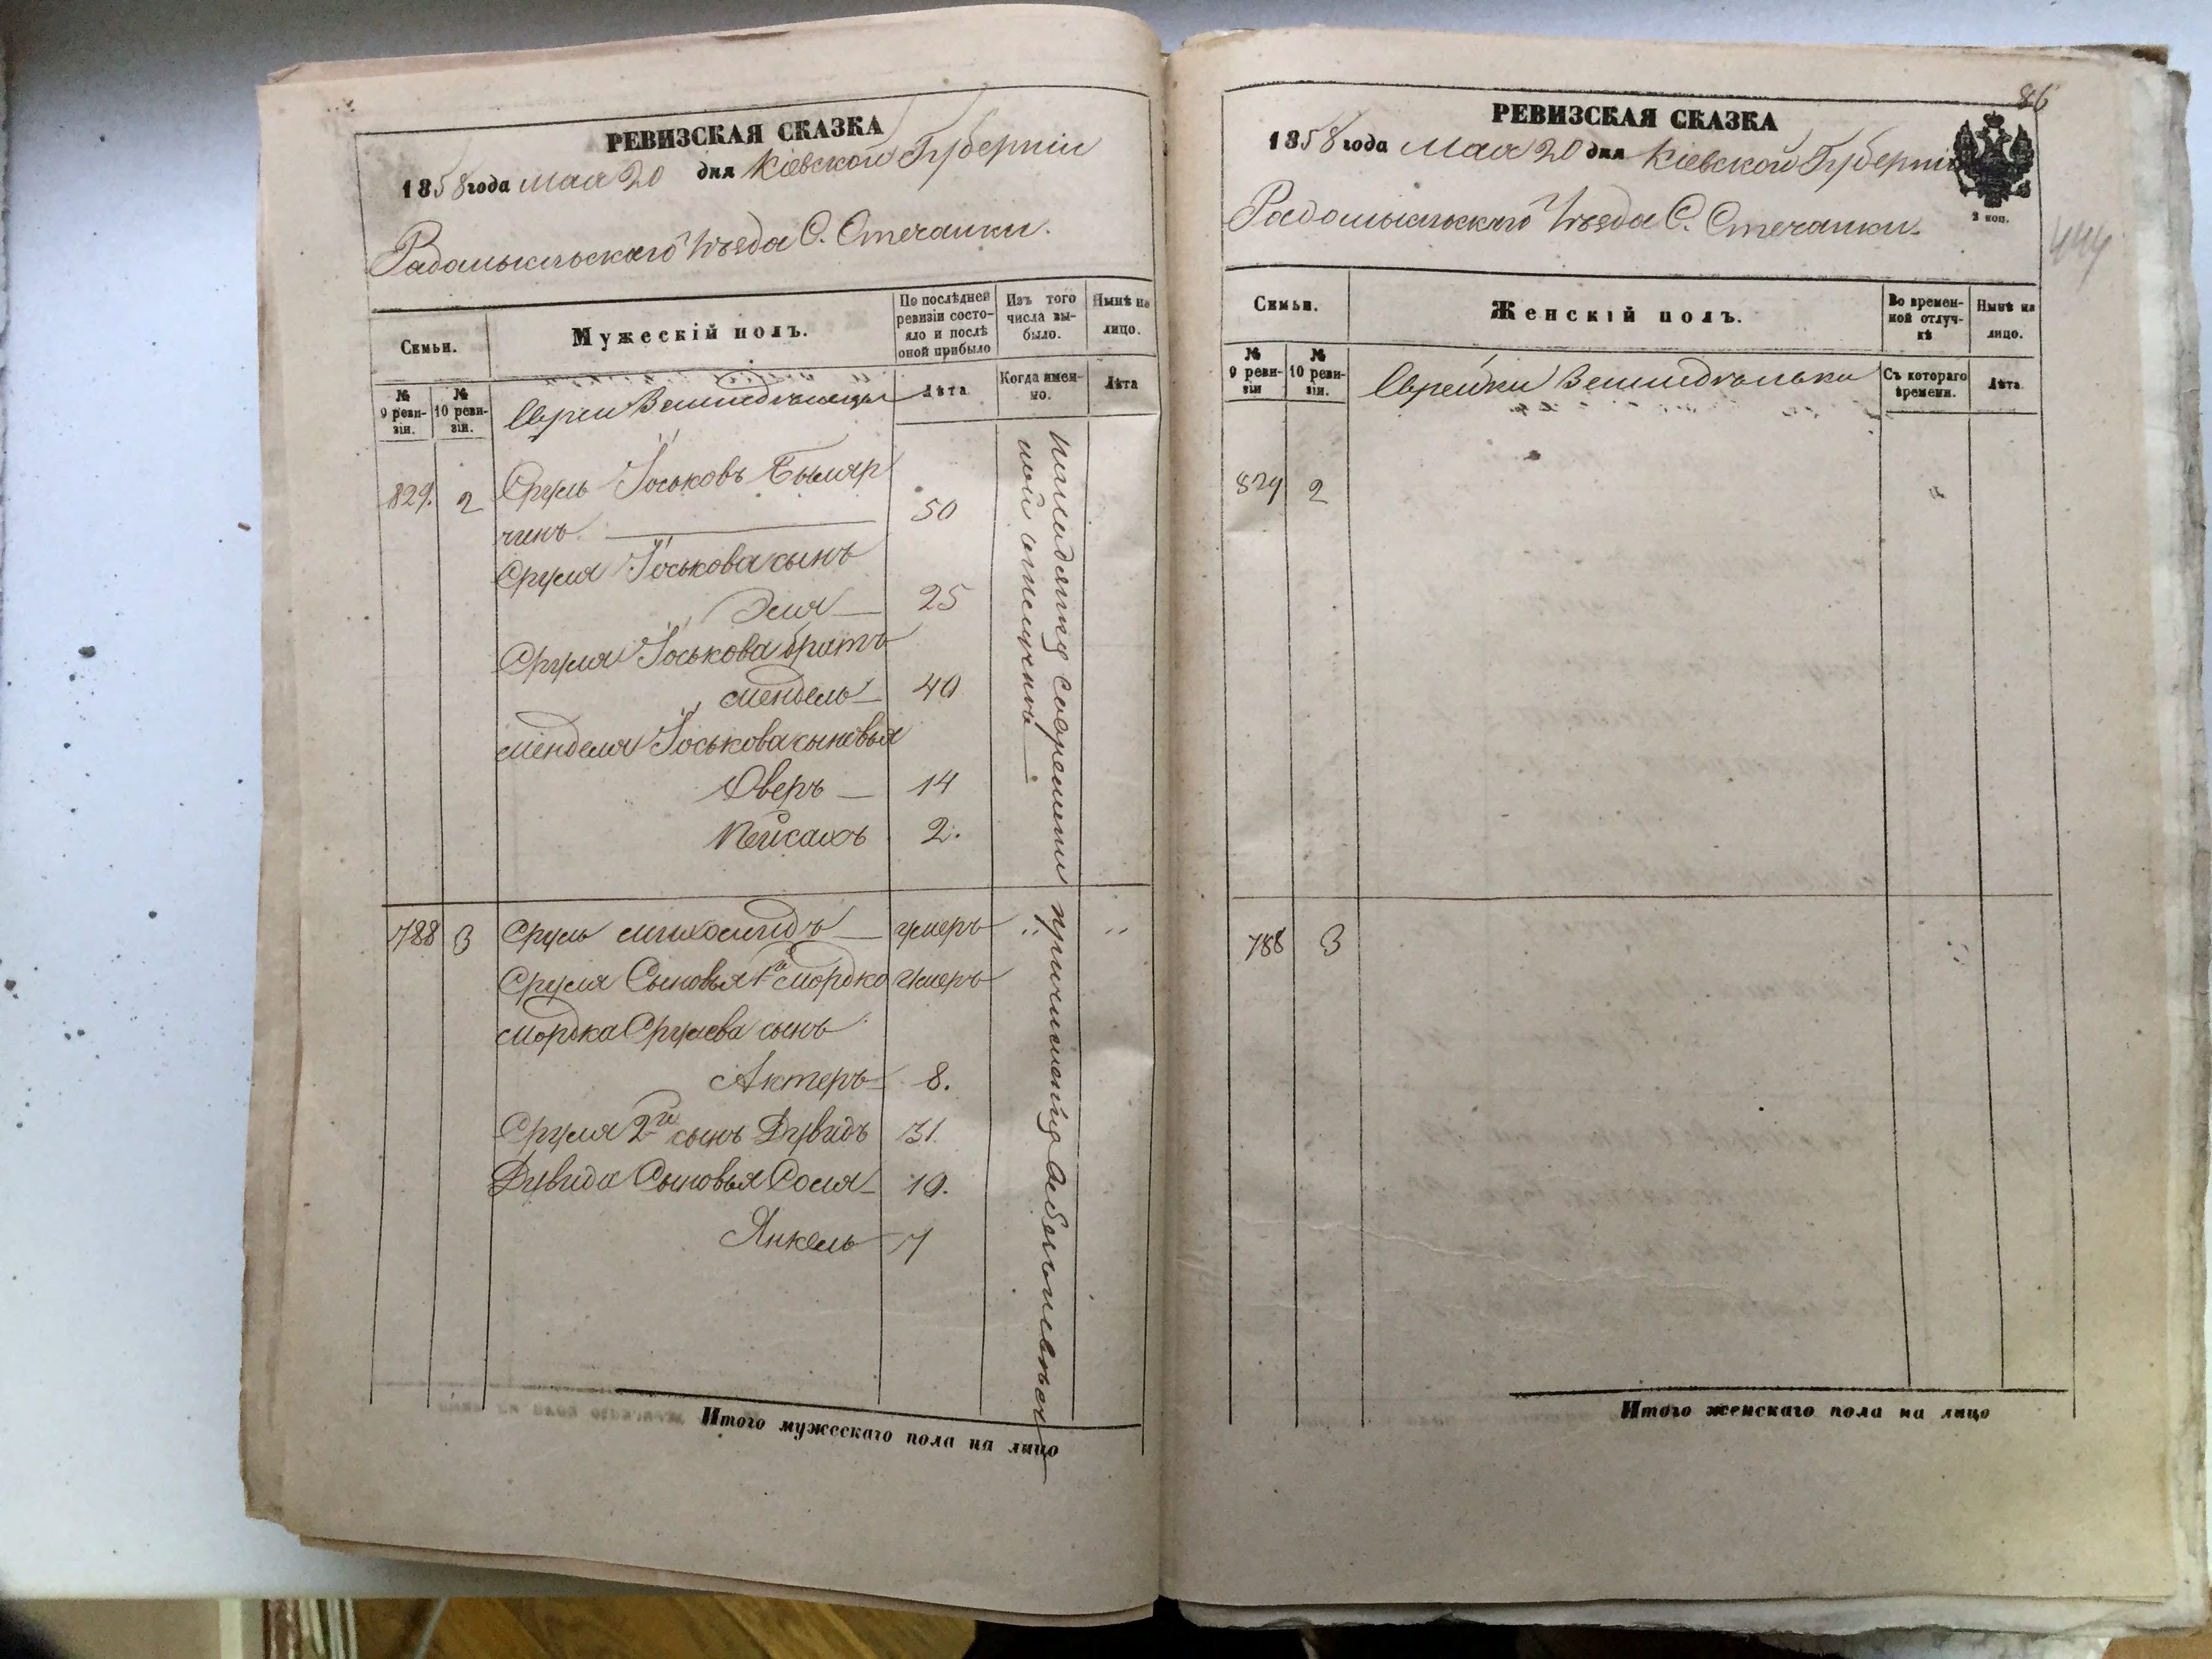 РЕВИЗСКАЯ СКАЗКА
1858 года мая 20 дня Кіевской Губерніи
Радомысльскаго Уѣзда С. Стечанки.
Семьи.
Мужескій полъ.
По послѣдней ревизіи состояло и послѣ оной прибыло
Изъ того числа выбыло.
Нынѣ на лицо.
№ 9 ревизіи.
№ 10 ревизіи.
Евреи Земледѣльцы
Лѣта
Когда именно.
Лѣта
829. 2 Сруль Іоськовъ
чинъ 50
Сруля Іоськова сынъ
Эля 25
Сруля Іоськова братъ
Мендель 40
Менделя Іоськова сыновья
Оверъ 14
Пейсахъ 2.
788 3 Сруль умеръ
Сруля Сыновья 1й Мордко умеръ
Мордка Срулева сынъ
Актеръ 8.
Сруля 2й сынъ Дувидъ 31.
Дувида Сыновья Соля 10.
Янкель 7
со времени причисленія
Итого мужескаго пола на лицо
86
РЕВИЗСКАЯ СКАЗКА
1858 года мая 20 дня Кіевской Губерніи
2 коп.
Радомысльскаго Уѣзда С. Стечанки.
444
Семьи.
Женскій полъ.
Во временной отлучкѣ
Нынѣ на лицо.
№ 9 ревизіи
№ 10 ревизіи.
Еврейки Земледѣльки
Съ котораго времени.
Лѣта
829 2
788 3
Итого женскаго пола на лицо